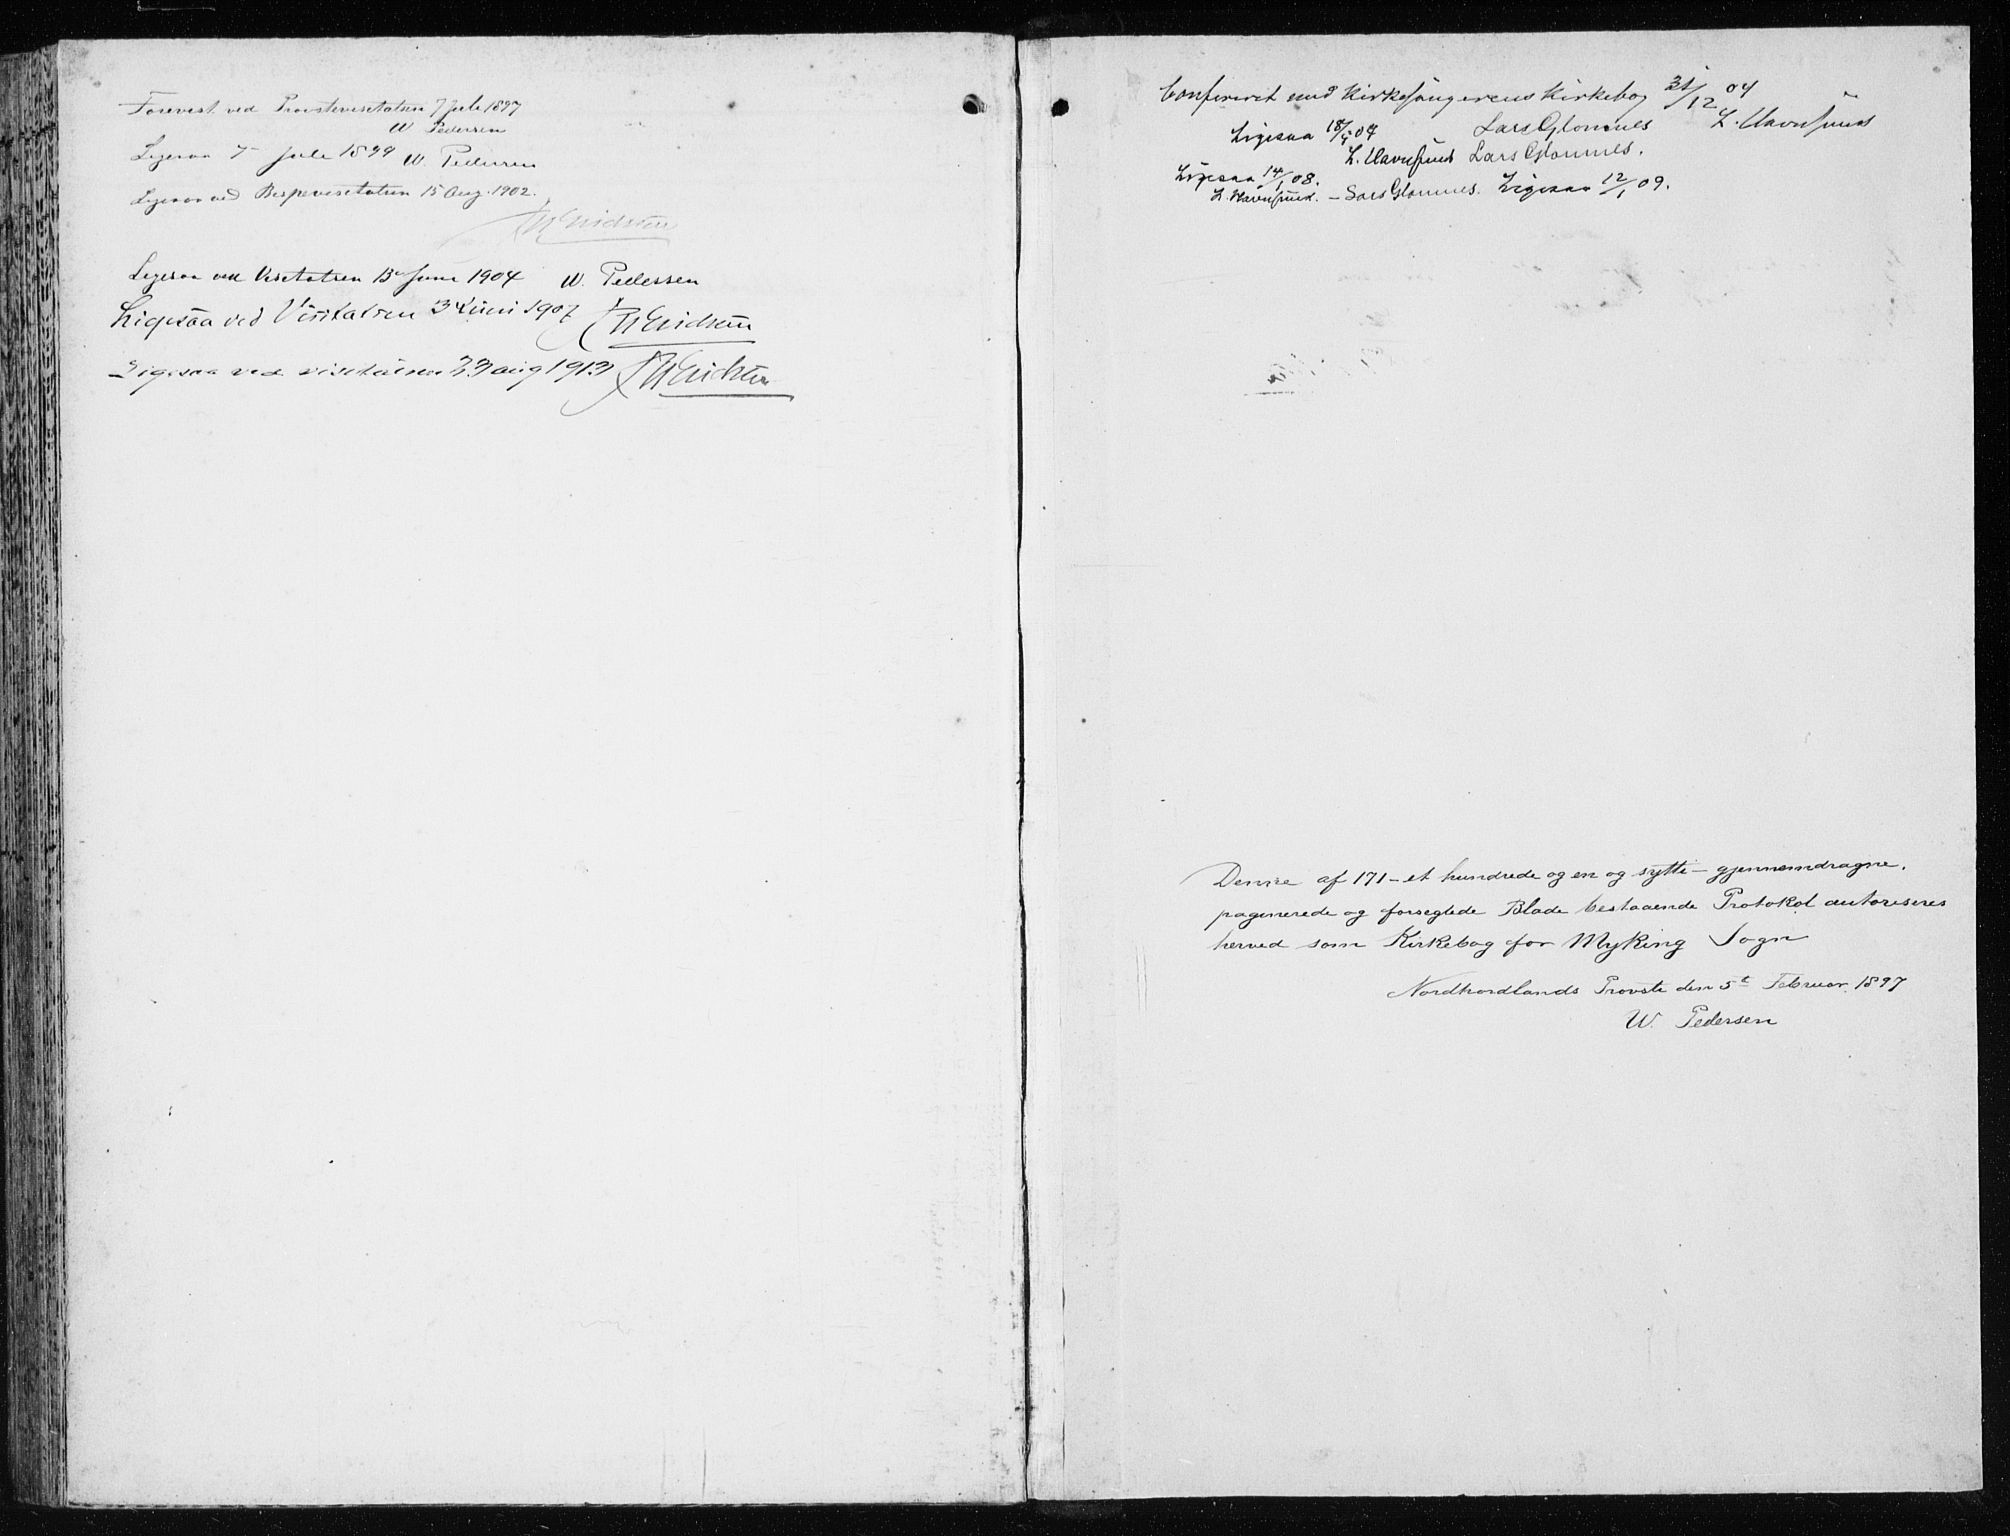 Forevist ved Provstevisitatsen 7 Juli 1897
W. Pedersen
Ligesaa 7 Juli 1899 W. Pedersen
Ligesaa ved Bispevisitatsen 15 Aug. 1902.
Ligesaa ved Visitatsen 13 Juni 1904 W. Pedersen
Ligesaa ved Visitatsen 3 Juni 1907
Ligesaa ved visitatsen 23 aug 1913
Confereret med Kirkesangerens Kirkebog 31/12 04
Lars Glomnes L. Havnsund
Ligesaa 18/5 07
L. Havnsund Lars Glomnes.
Ligesaa 14/1 08.
L. Havnsund. – Lars Glomnes. Ligesaa 12/1 09.
Denne af 171 – et hundrede og en og sytti – gjennemdragne,
paginerede og forseglede Blade bestaaende Protokol autoriseres
herved som Kirkebog for Myking Sogn
Nordhordlands Provsti den 5t Februar 1897
W. Pedersen